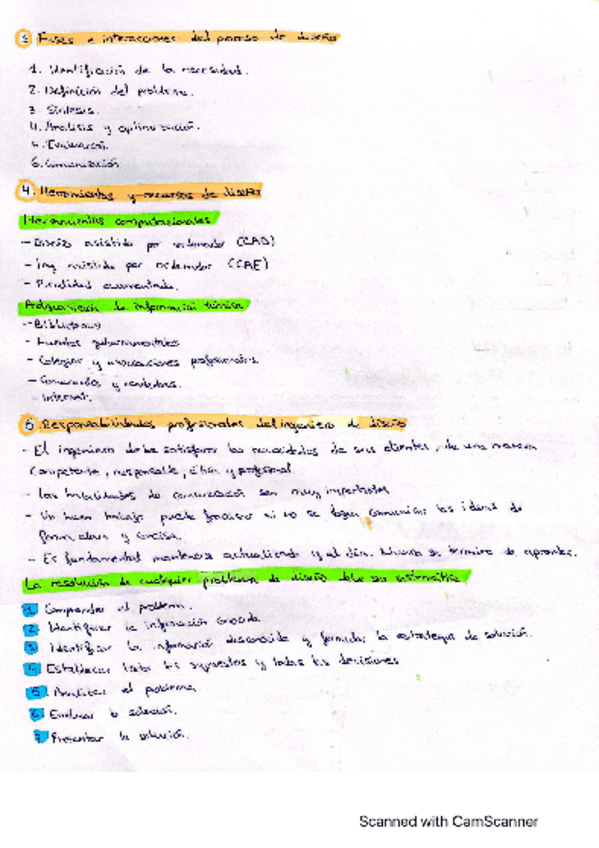 3 Fases e interacciones del proceso de diseño
1. Identificación de la necesidad.
2. Definición del problema.
3. Síntesis.
4. Análisis y optimización.
5. Evaluación.
6. Comunicación
4. Herramientas y recursos de diseño
Herramientas computacionales
- Diseño asistido por ordenador (CAD)
- Ing asistida por ordenador (CAE)
- Realidad aumentada.
Adquisición de información técnica
- Bibliotecas
- Fuentes gubernamentales
- Colegios y asociaciones profesionales.
- Comerciales y vendedores.
- Internet.
5 Responsabilidades profesionales del ingeniero de diseño
- El ingeniero debe satisfacer las necesidades de sus clientes, de una manera
competente, responsable, ética y profesional.
- Las habilidades de comunicación son muy importantes
- Un buen trabajo puede fracasar si no se logra comunicar las ideas de
forma clara y concisa.
- Es fundamental mantenerse actualizado y al día. Nunca se termina de aprender.
La resolución de cualquier problema de diseño debe ser sistemática
1. Comprender el problema.
2. Identificar la información conocida.
3. Identificar la información desconocida y formular la estrategia de solución.
4. Establecer todos los supuestos y todas las decisiones
5. Analizar el problema
6. Evaluar la solución.
7. Presentar la solución.
Scanned with CamScanner